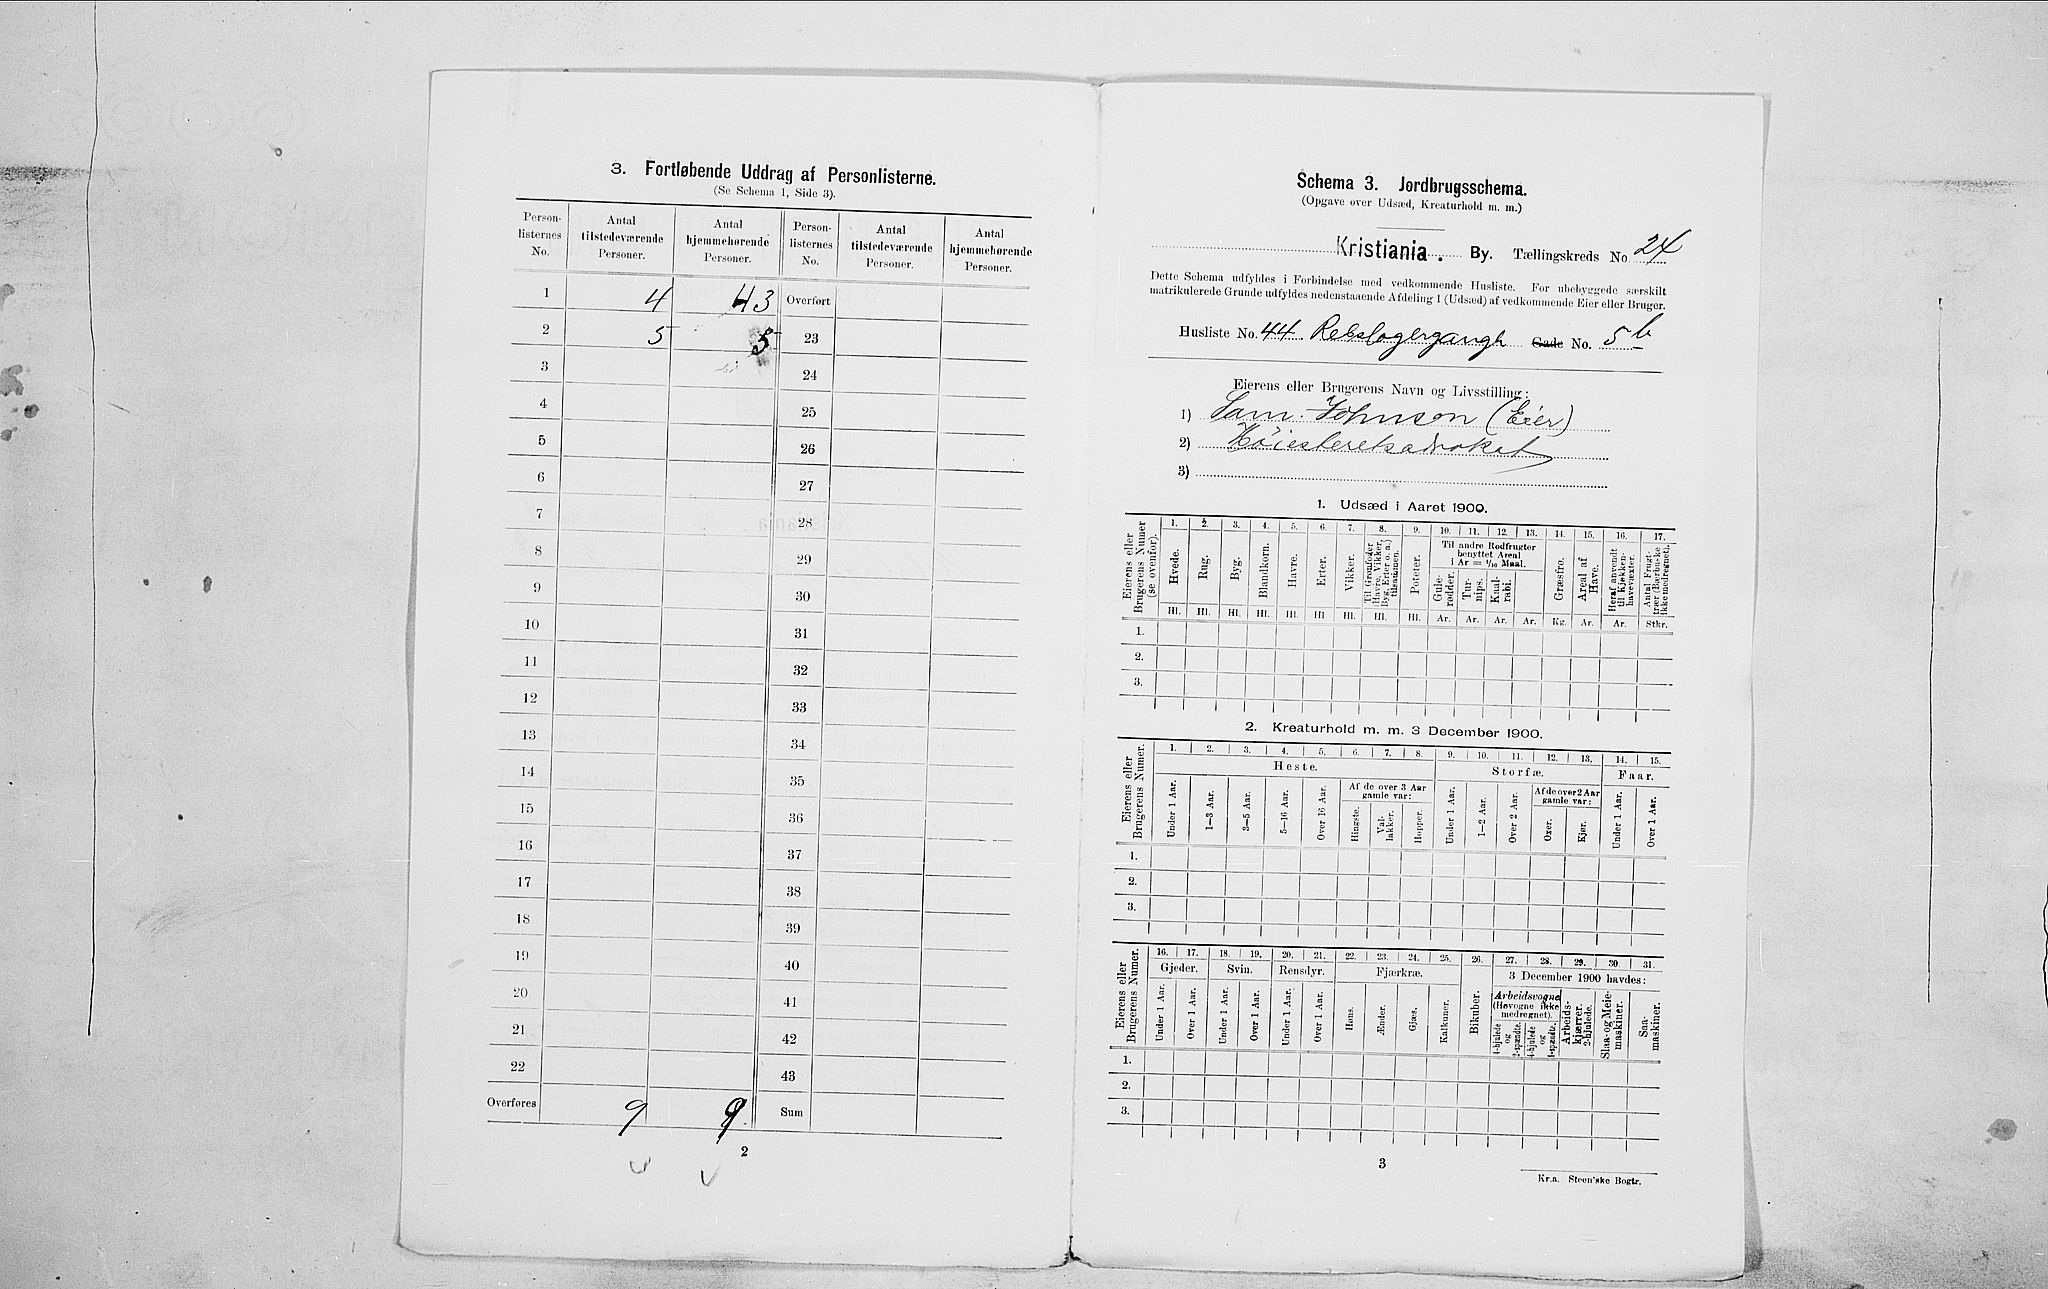 3. Fortløbende Uddrag af Personlisterne.
(Se Schema 1, Side 3).
Person-listernes No. Antal tilstedeværende Personer. Antal hjemmehørende Personer. Person-listernes No. Antal tilstedeværende Personer. Antal hjemmehørende Personer.
1 4 43 Overført
2 5 5 23
3 24
4 25
5 26
6 27
7 28
8 29
9 30
10 31
11 32
12 33
13 34
14 35
15 36
16 37
17 38
18 39
19 40
20 41
21 42
22 43
Overføres 9 9 Sum
2
Schema 3. Jordbrugsschema.
(Opgave over Udsæd, Kreaturhold m. m.)
Kristiania. By. Tællingskreds No 24
Dette Schema udfyldes i Forbindelse med vedkommende Husliste. For ubebyggede særskilt
matrikulerede Grunde udfyldes nedenstaaende Afdeling 1 (Udsæd) af vedkommende Eier eller Bruger.
Husliste No. 44 Gade No. 5b
Eierens eller Brugerens Navn og Livsstilling:
1) Sam. Johnson (Eier)
2) Høiesteretsadvokat
3)
1. Udsæd i Aaret 1900.
Eierens eller Brugerens Numer (se ovenfor).
1. 2. 3. 4. 5. 6. 7. 8. 9. 10. 11. 12. 13. 14. 15. 16. 17.
Hvede. Rug. Byg. Blandkorn. Havre. Erter. Vikker. Til Grønfoder (Havre, Vikker, Byg, Erter o. a.) tilsammen. Poteter.
Til andre Rodfrugter benyttet Areal i Ar = 1/10 Maal.
Gule-rødder. Tur-nips. Kaal-rabi. Græsfrø. Areal af Have. Heraf anvendt til Kjøkken-havevæxter. Antal Frugt-trær (Bærbuske ikke medregnet).
Hl. Hl. Hl. Hl. Hl. Hl. Hl. Hl. Hl. Ar. Ar. Ar. Ar. Kg. Ar. Ar. Stkr.
1.
2.
3.
2. Kreaturhold m. m. 3 December 1900.
Eierens eller Brugerens Numer.
1. 2. 3. 4. 5. 6. 7. 8. 9. 10. 11. 12. 13. 14. 15.
Heste. Storfæ. Faar.
Af de over 3 Aar gamle var: Af de over 2 Aar gamle var:
Under 1 Aar. 1—3 Aar. 3—5 Aar. 5—16 Aar. Over 16 Aar. Hingste. Val-lakker. Hopper. Under 1 Aar. 1—2 Aar. Over 2 Aar. Oxer. Kjør. Under 1 Aar. Over 1 Aar.
1.
2.
3.
Eierens eller Brugerens Numer.
16. 17. 18. 19. 20. 21. 22. 23. 24. 25. 26. 27. 28. 29. 30. 31.
Gjeder. Svin. Rensdyr. Fjærkræ. Bikuber. 3 December 1900 havdes:
Arbeidsvogne (Høvogne ikke medregnet).
Under 1 Aar. Over 1 Aar. Under 1 Aar. Over 1 Aar. Under 1 Aar. Over 1 Aar. Høns. Ænder. Gjæs. Kalkuner. 4-hjulede og 2-spændte. 4-hjulede og 1-spændte. Arbeids-kjærrer, 2-hjulede. Slaa- og Meie-maskiner. Saa-maskiner.
1.
2.
3.
3
Kr.a. Steen'ske Bogtr.